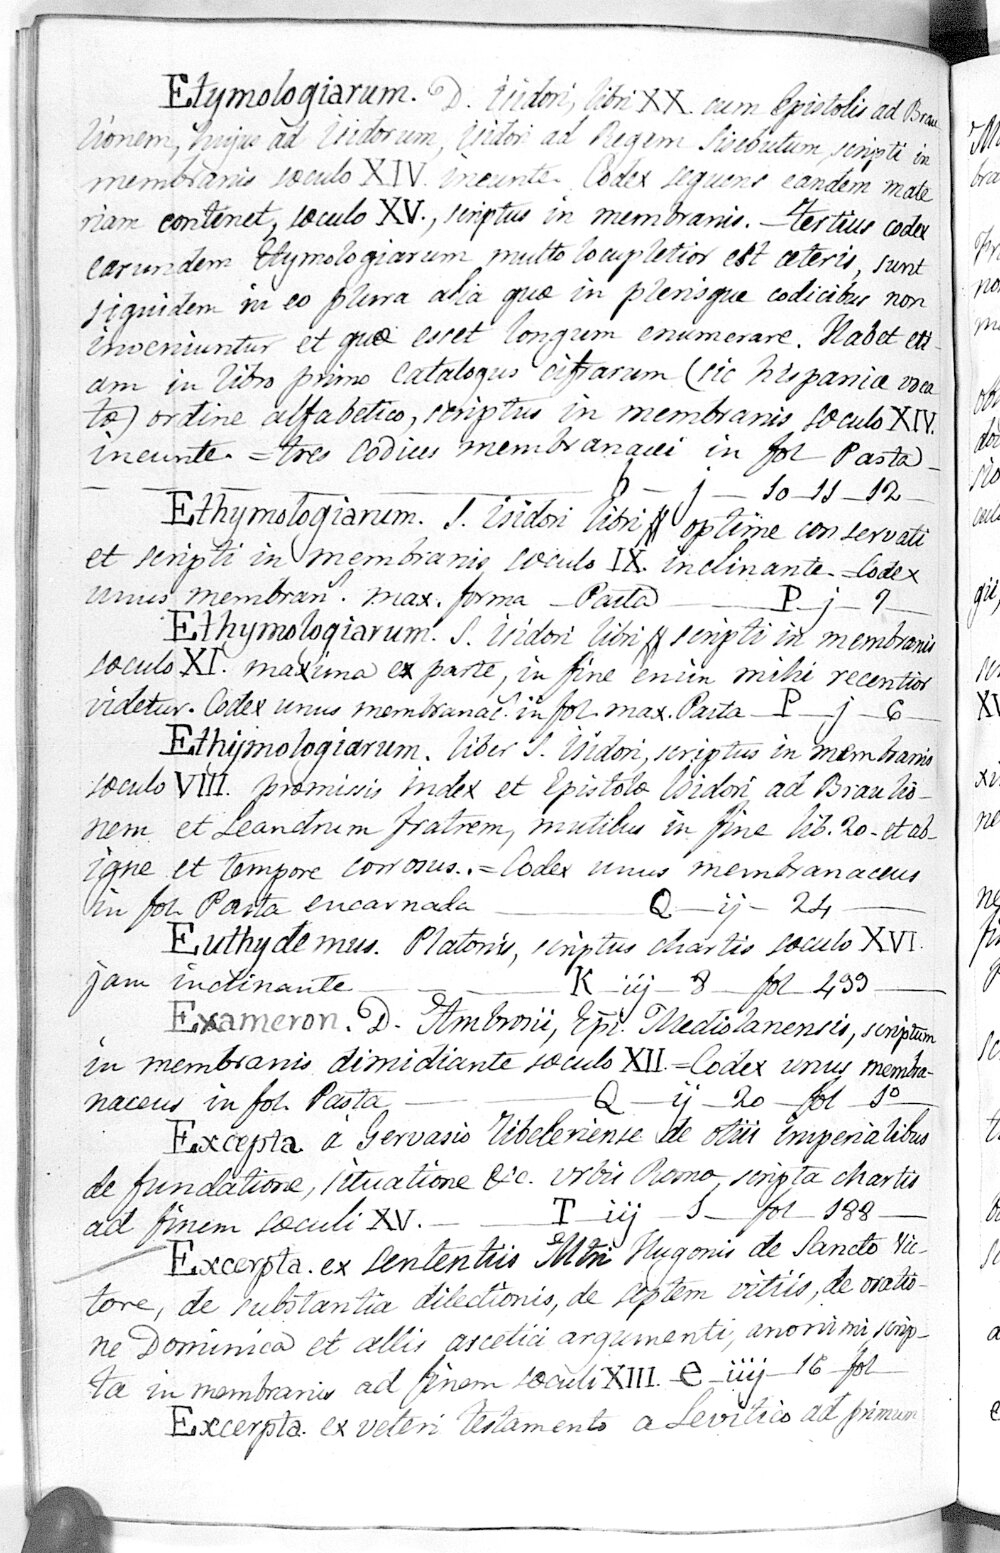 Etymologiarum. D. Isidori, libri XX. cum Epistolis ad Brau
lionem, hujus ad Isidorum, Isidori ad Regem Sisebutum, scripti in
membranis sæculo XIV. incunte. Codex sequens eandem mate
riam continet, sæculo XV., scriptus in membranis. – tertius codex
earundem Etymologiarum multo locupletior est ceteris, sunt
siquidem in eo plura alia quæ in plerisque codicibus non
inveniuntur et quæ esset longum enumerare. Habet eti-
am in libro primo catalogus cifrarum (sic hispaniæ voca
tæ) ordine alfabetico, scriptus in membranis sæculo XIV.
incunte. = tres codices membranacei in fol. Pasta –
b – j – 10 – 11 – 12 –
Ethymologiarum. S. Isidori libri optime conservati
et scripti in membranis sæculo IX. inclinante. = Codex
unus membran. max. forma – Pasta – P – j – 7 –
Ethymologiarum. S. Isidori libri scripti in membranis
sæculo XI. maxima ex parte, in fine enim mihi recentior
videtur. Codex unus membranac. in fol. max. Pasta – P – j – 6 –
Ethijmologiarum. liber S. Isidori, scriptus in membranis
sæculo VIII. præmissis Index et Epistolæ Isidori ad Braulio-
nem et Leandrum fratrem, mutilus in fine lib. 20. et ab
igne et tempore corrosus. = Codex unus membranaceus
in fol. Pasta encarnada – Q – ij – 24 –
Euthydemus. Platonis, scriptus chartis sæculo XVI.
jam inclinante – K – iij – 8 – fol – 499 –
Exameron. D. Ambrosii, Epi. Mediolanensis, scriptum
in membranis dimidiante sæculo XII. = Codex unus membra-
naceus in fol. Pasta – Q – ij – 20 – fol – 10
Excepta á Gervasio Tibeleriense de otiis imperialibus
de fundatione, situatione &c. urbis Romæ, scripta chartis
ad finem sæculi XV. – T – iij – 5 – fol – 188 –
Excerpta. ex sententiis Mtri Hugonis de Sancto Vic-
tore, de substantia dilectionis, de septem vitiis, de oratio-
ne Dominica et allis ascetici argumenti, anonimi, scrip-
ta in membranis ad finem sæculi XIII. e – iiij – 16 – fol
Excerpta. ex veteri testamento a Levitico ad primum